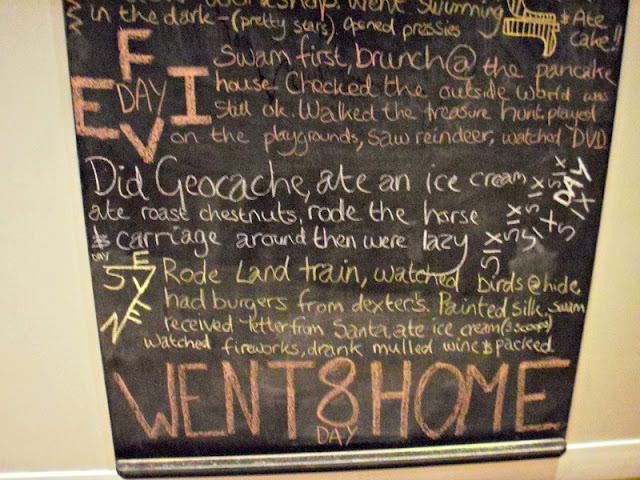 swimming
in the dark - (pretty stars) opened pressies
& Ate
cake!!
FIVE
DAY
Swam first, brunch @ the pancake
house. Checked the outside world was
still ok. Walked the treasure hunt, played
on the playgrounds, saw reindeer, watched DVD
Did Geocache, ate an ice cream,
ate roast chestnuts, rode the horse
& carriage around then were lazy
SIX SIX SIX DAY SIX SIX
DAY
SEVEN
Rode Land train, watched birds @ hide,
had burgers from dexter's. Painted silk, swam
received letter from Santa, ate ice cream (3 scoops)
watched fireworks, drank mulled wine & packed
WENT 8 HOME
DAY